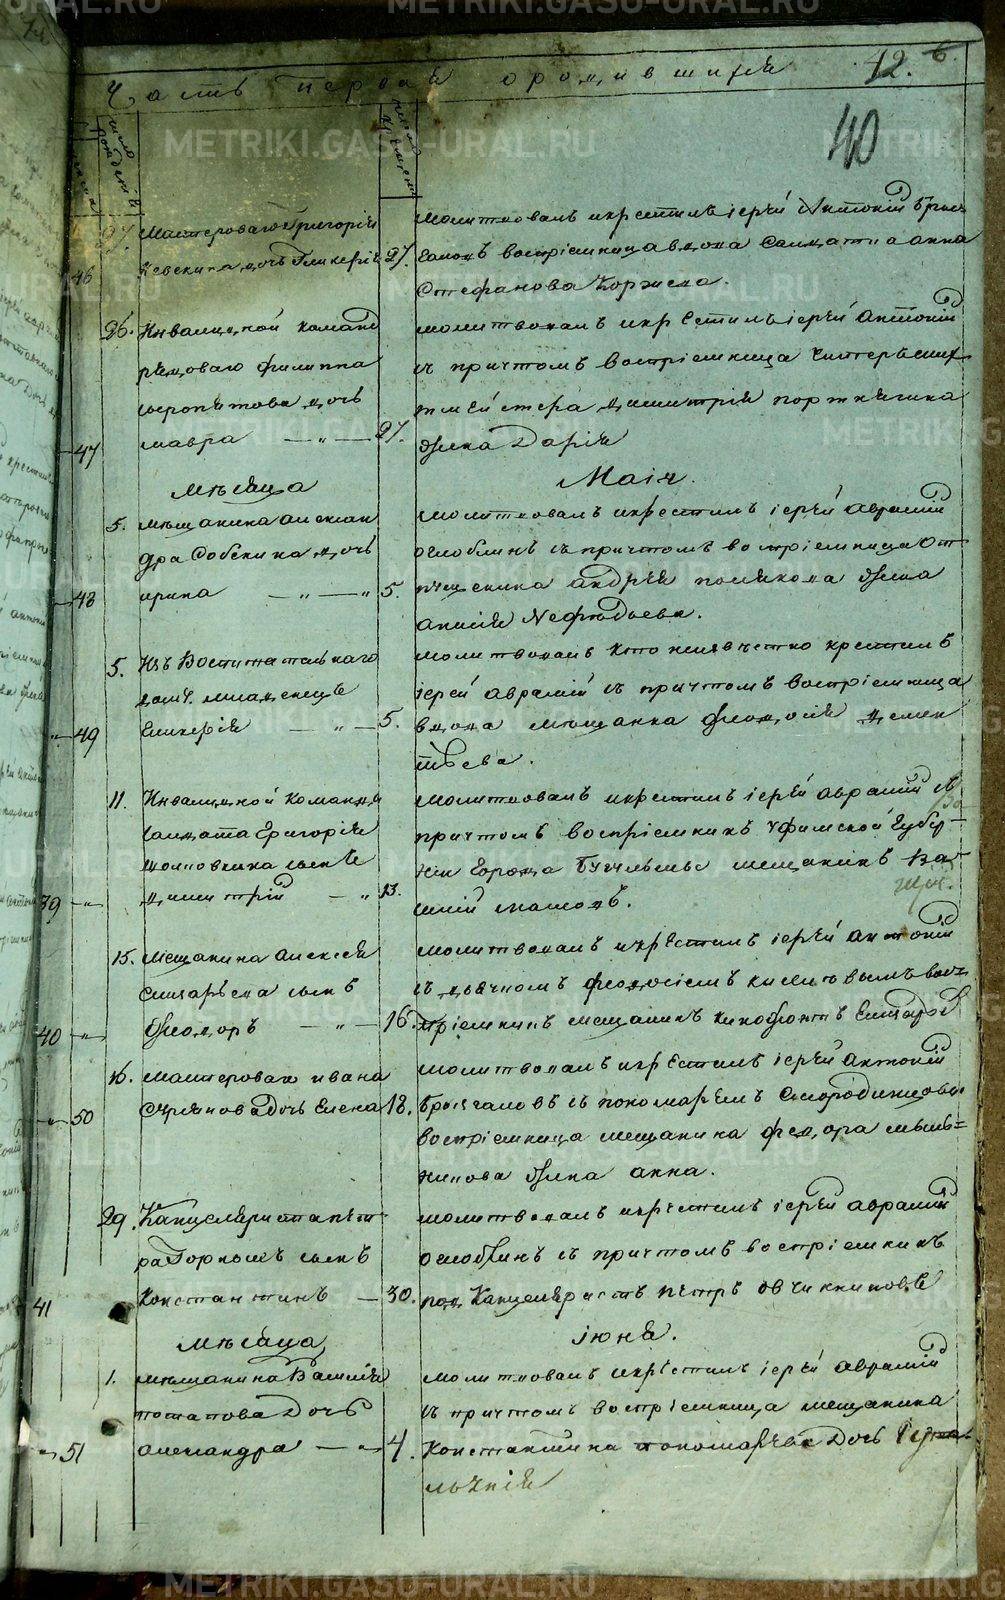 Часть первая о родившихся
12.
6.
40
число рождения
число крещения
27. Мастероваго Григорія
46 Невскина дочь Гликерія 27.
молитвовалъ и крестилъ іерей Антоній Брыз
галовъ воспріемница вдова Салдатка анна
Стефанова Коржева.
26. Инвалидной команд
рядоваго филиппа
сыропятова дочь
47 мавра 27.
молитвовалъ и крестилъ іерей Антоній
съ причтомъ воспріемница
димитрія портнягина
жена Дарія
мѣсяца Маія.
5. мѣщанина алексан
дра Собенина дочь
48 ирина 5.
молитвовалъ и крестилъ іерей аврамій
оглоблинъ съ причтомъ воспріемница От
пущеника андрея полякова жена
анисія Нефедьева.
5. Изъ Воспитательнаго
дому младенецъ
49 Гликерія 5.
молитвовалъ кто неизвѣстно крестилъ
іерей аврамій съ причтомъ воспріемница
вдова мѣщанка феодосія демен
тьева.
11. Инвалидной команды
салдата Григорія
сынъ
39 димитрій 13.
молитвовалъ и крестилъ іерей аврамій съ
причтомъ воспріемникъ Уфимской Губер
ніи Города Бугульмы мещанинъ Ва
силій мамовъ.
15. Мещанина алексея
сынъ
40 Феодоръ 16.
молитвовалъ и крестилъ іерей антоній
съ дьячкомъ феодосіемъ киселевымъ вос
пріемникъ мещанинъ
16. мастероваго ивана
50 дочь Елена 18.
молитвовалъ и крестилъ іерей антоній
Брызгаловъ съ пономаремъ Смородинцовы
воспріемница мещанина федора мыль=
никова жена анна.
29. Канцеляриста пет
ра Горныхъ сынъ
41 Константинъ 30.
молитвовалъ и крестилъ іерей аврамій
оглоблинъ съ причтомъ воспріемникъ
под Канцеляристъ петръ овчинниковъ
мѣсяца іюня.
1. мѣщанина Василія
потапова Дочь
51 александра 4.
молитвовалъ и крестилъ іерей аврамій
съ причтомъ воспріемница мещанина
Константина пономарева Дочь
METRIKI.GASU-URAL.RU